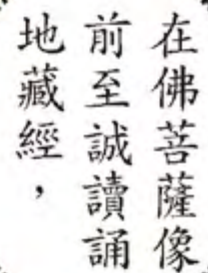 在佛菩薩像
前至誠讀誦
地藏經，